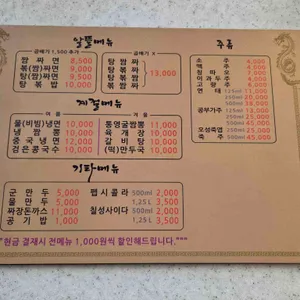 알뜰메뉴
곱배기 1,500 추가
짬짜면 8,500
볶(짬)짜면 9,000
탕(짬)짜면 9,500
탕볶밥 10,000
곱배기 X
탕짬짜
탕볶짜
탕볶짬 13,000
계절메뉴
여름
물(비빔)냉면 10,000
냉짬뽕 10,000
중국냉면 12,000
검은콩국수 10,000
겨울
통영굴짬뽕 11,000
육개장 10,000
갈비탕 10,000
(떡)만두국 10,000
기타메뉴
군만두 5,000
물만두 5,000
짜장돈까스 11,000
공기밥 1,000
펩시콜라 500ml 2,000
1,25L 3,500
칠성사이다 500ml 2,000
1,25L 3,500
주류
소주 4,000
맥주 4,000
칭따오 7,000
이과두주 4,000
고량주 6,000
연태 125ml 11,000
250ml 20,000
500ml 35,000
공부가주 125ml
250ml
500ml
오성죽엽 250ml 25,000
죽엽 500ml 45,000
"현금 결재시 전메뉴 1,000원씩 할인해드립니다."""